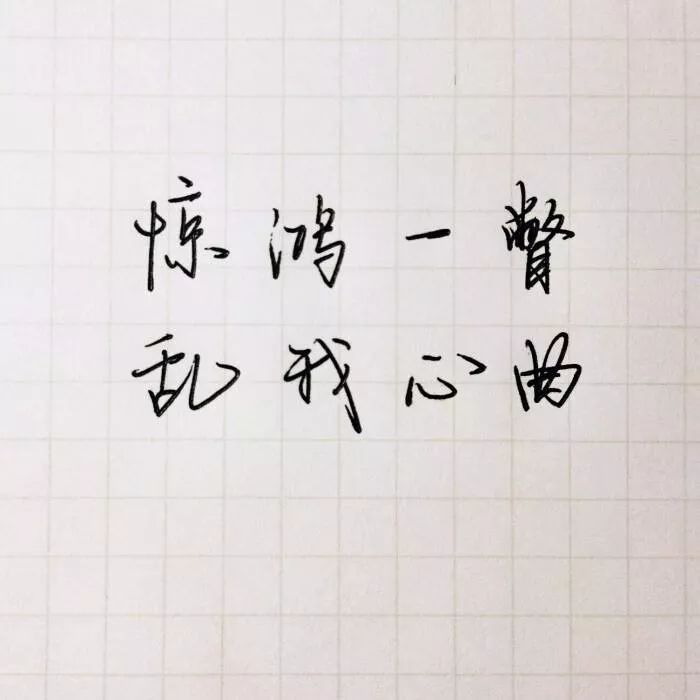 惊鸿一瞥
乱我心曲